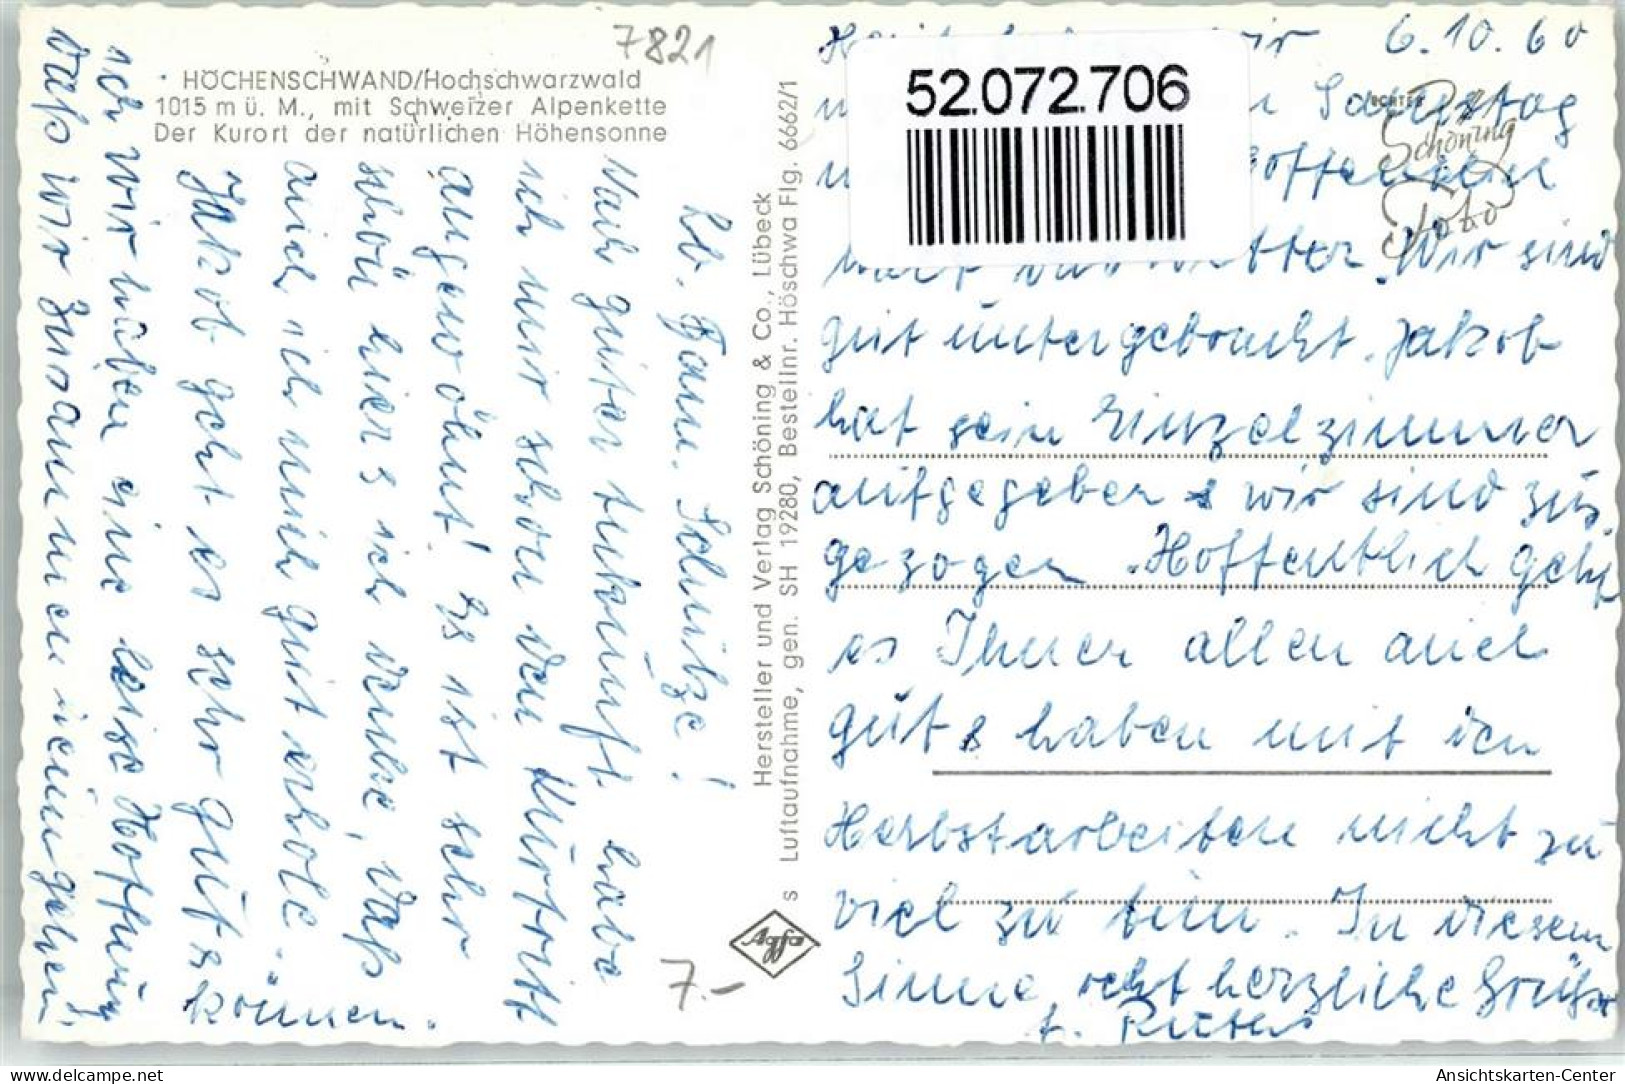 7821
HÖCHENSCHWAND/Hochschwarzwald
1015 m ü. M., mit Schweizer Alpenkette
Der Kurort der natürlichen Höhensonne
Lb. Fam. Schnitze!
Nach guter Ankunft habe
ich mir schon den Kurtritt
angewöhnt! Es ist sehr
schön hier & ich denke, daß
auch ich mich gut erhole.
Jakob geht es sehr gut &
ich wir haben eine leise Hoffnung
daß wir zusammen heimgehen
können.
Hersteller und Verlag Schöning & Co., Lübeck
s Luftaufnahme, gen. SH 19280, Bestellnr. Höschwa Flg. 6662/1
Agfa
7.-
52.072.706
ECHTES
Schöning
Foto
6.10.60
wir
Samstag
Wetter. Wir sind
gut untergebracht. Jakob
hat sein Einzelzimmer
aufgegeben & wir sind zus.
gezogen. Hoffentlich geht
es Ihnen allen auch
gut & haben mit den
Herbstarbeiten nicht zu
viel zu tun. In diesem
Sinne, recht herzliche Grüße
Ansichtskarten-Center